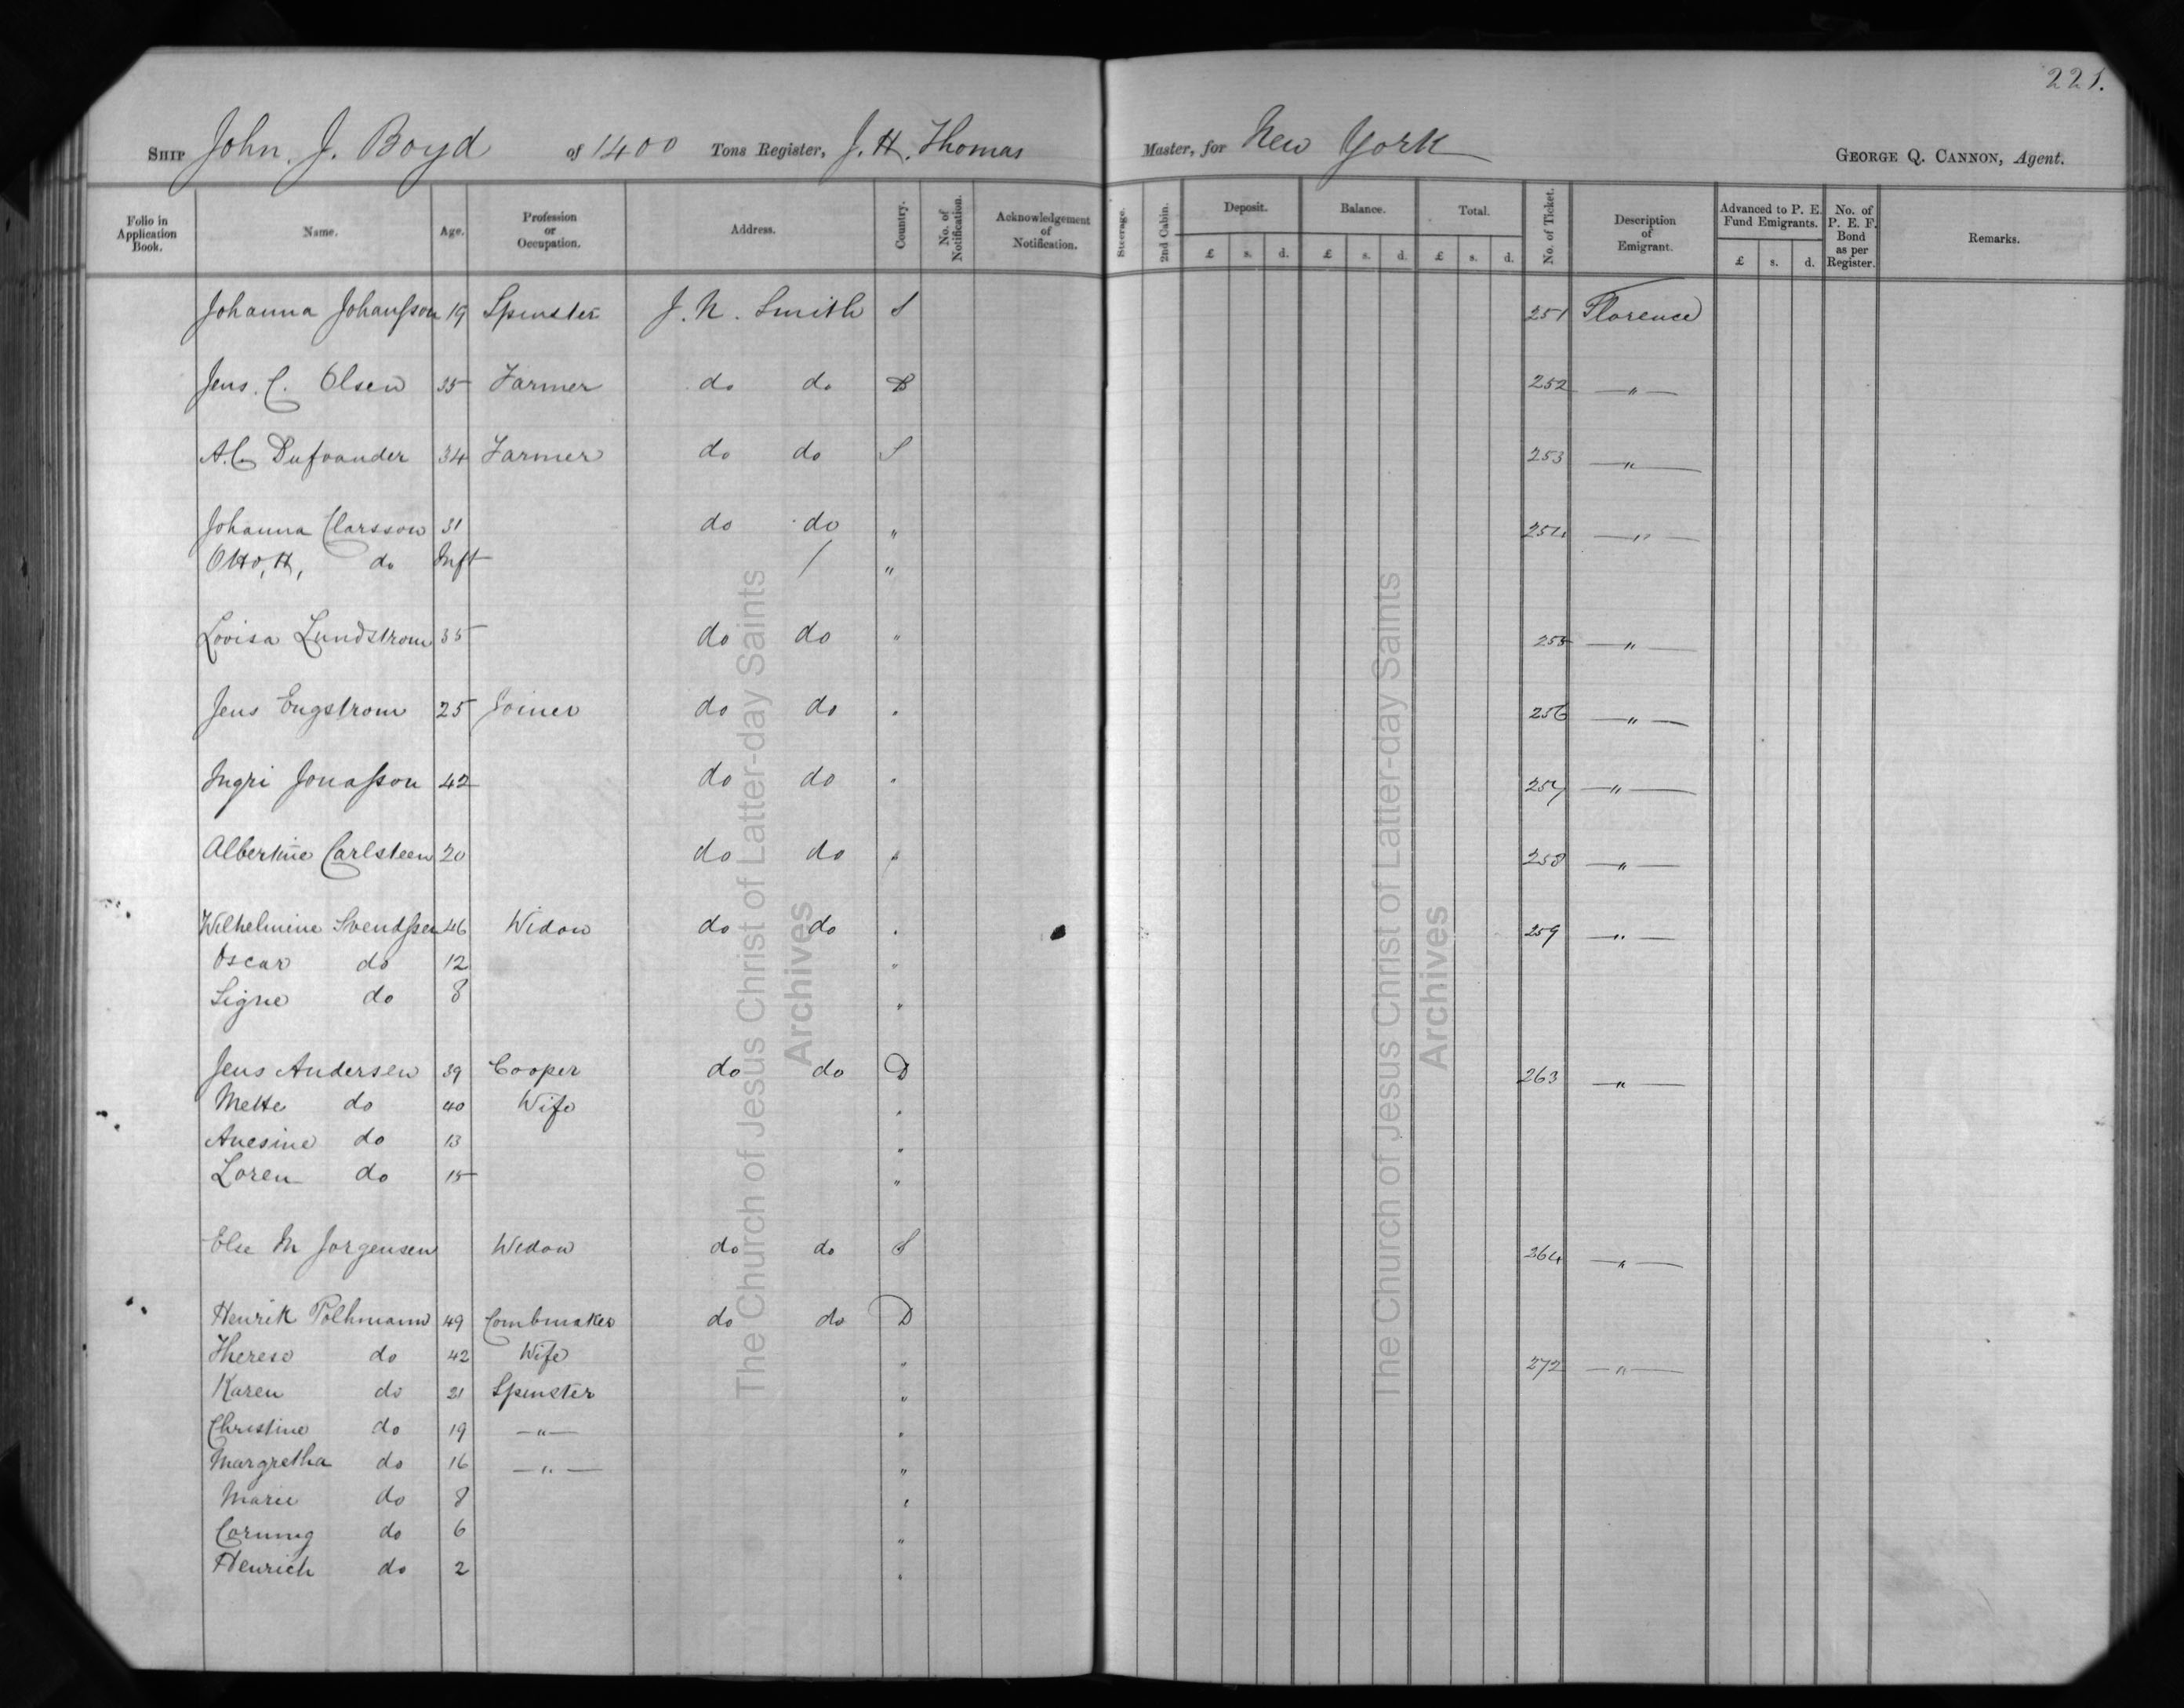 221.
SHIP John. J. Boyd of 1400 Tons Register, J. H. Thomas Master, for New York GEORGE Q. CANNON, Agent.
Folio in Application Book. Name. Age. Profession or Occupation. Address. Country. No. of Notification. Acknowledgement of Notification. Steerage. 2nd Cabin. Deposit. £ s. d. Balance. £ s. d. Total. £ s. d. No. of Ticket. Description of Emigrant. Advanced to P. E. Fund Emigrants. £ s. d. No. of P. E. F. Bond as per Register. Remarks.
Johanna Johansson 19 Spinster J. N. Smith S 251 Florence
Jens. C. Olsen 35 Farmer do do D 252 — " —
A. C. 34 Farmer do do S 253 — " —
Johanna Clarsson 31 do do " 254 — " —
Otto, H, do Inft / "
Lovisa Lundstrom 35 do do " 255 — " —
Jens Engstrom 25 Joiner do do " 256 — " —
Ingri Jonasson 42 do do " 257 — " —
Albertine Carlsteen 20 do do " 258 — " —
Wilhelmine Svendsen 46 Widow do do " 259 — " —
Oscar do 12 "
Signe do 8 "
Jens Andersen 39 Cooper do do D 263 — " —
Mette do 40 Wife "
Anesine do 13 "
Soren do 15 "
Else M Jorgensen Widow do do S 264 — " —
Henrik Polhmann 49 Combmaker do do D
Therese do 42 Wife " 272 — " —
Karen do 21 Spinster "
Christine do 19 — " — "
Margretha do 16 — " — "
Marie do 8 "
do 6 "
Henrich do 2 "
The Church of Jesus Christ of Latter-day Saints
Archives
The Church of Jesus Christ of Latter-day Saints
Archives